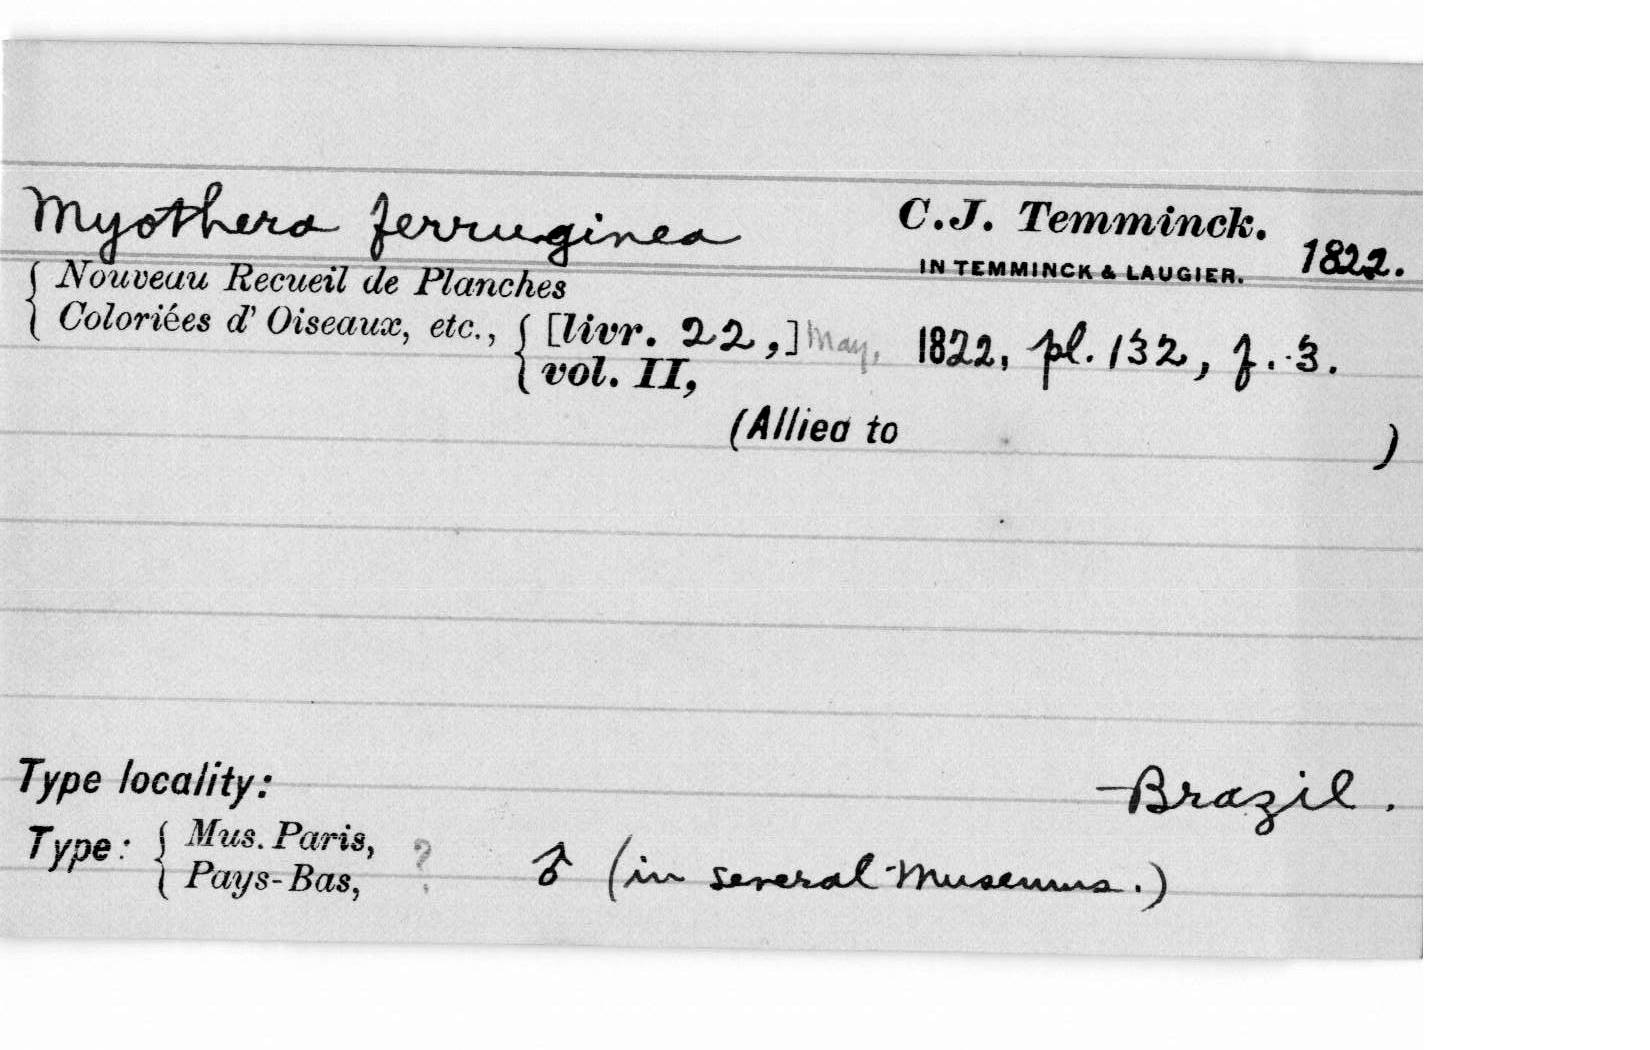 Myothera ferruginea C.J. Temminck.
IN TEMMINCK & LAUGIER. 1822.
{ Nouveau Recueil de Planches
Coloriées d' Oiseaux, etc., { [livr. 22,] May, 1822, pl. 132, f. 3.
vol. II,
(Allied to )
Type locality: Brazil.
Type: { Mus. Paris,
Pays-Bas, ? ♂ (in several Museums.)